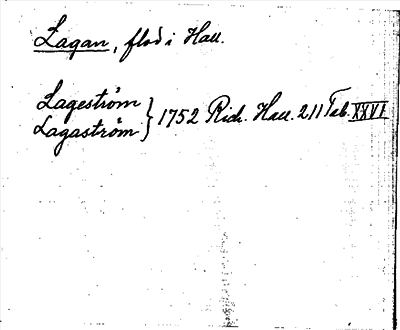 Lagan, flod i Hall.
Lageström
Lagaström } 1752 Rich. Hall. 211 Tab. XXVI